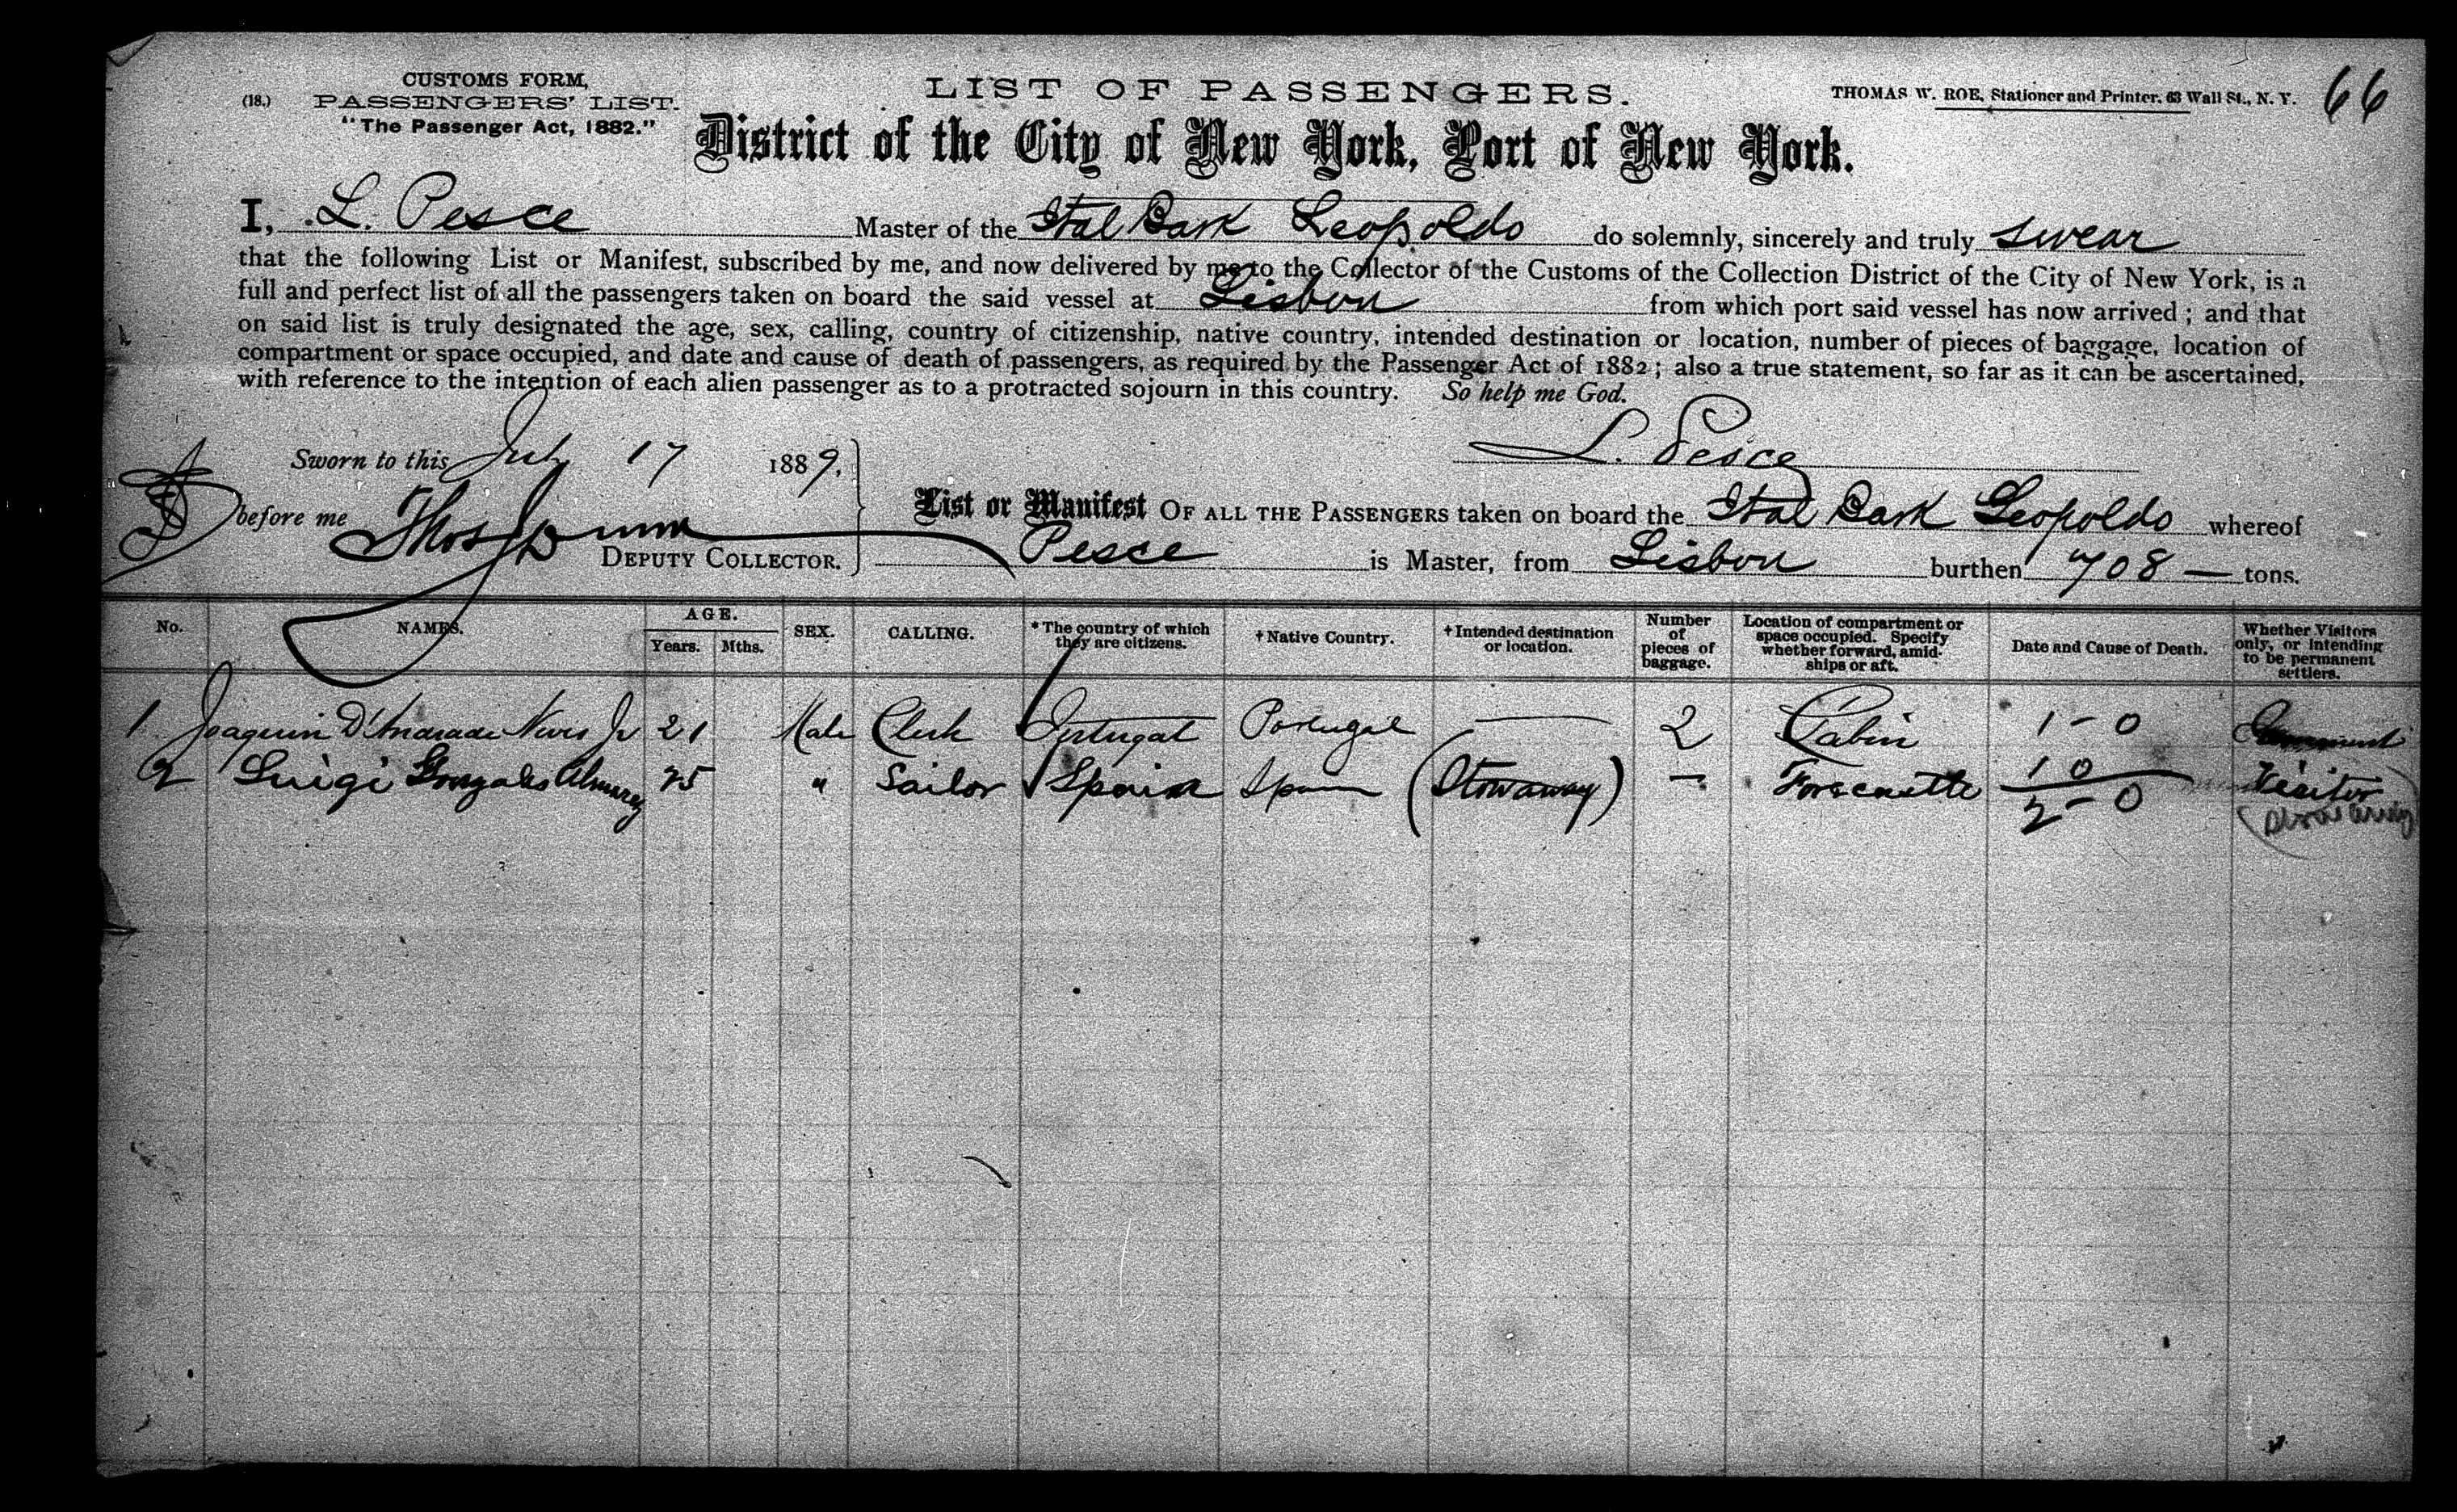 CUSTOMS FORM,
(18.) PASSENGERS' LIST.
"The Passenger Act, 1882."
LIST OF PASSENGERS.
THOMAS W. ROE, Stationer and Printer, 63 Wall St., N. Y.
66
District of the City of New York, Port of New York.
I, L. Pesce Master of the Ital Bark Leopoldo do solemnly, sincerely and truly swear
that the following List or Manifest, subscribed by me, and now delivered by me to the Collector of the Customs of the Collection District of the City of New York, is a
full and perfect list of all the passengers taken on board the said vessel at Lisbon from which port said vessel has now arrived; and that
on said list is truly designated the age, sex, calling, country of citizenship, native country, intended destination or location, number of pieces of baggage, location of
compartment or space occupied, and date and cause of death of passengers, as required by the Passenger Act of 1882; also a true statement, so far as it can be ascertained,
with reference to the intention of each alien passenger as to a protracted sojourn in this country. So help me God.
Sworn to this July 17 1889.
L. Pesce
before me Thos
DEPUTY COLLECTOR.
List or Manifest OF ALL THE PASSENGERS taken on board the Ital Bark Leopoldo whereof
Pesce is Master, from Lisbon burthen 708 — tons.
No. NAMES. AGE. Years. Mths. SEX. CALLING. *The country of which they are citizens. †Native Country. †Intended destination or location. Number of pieces of baggage. Location of compartment or space occupied. Specify whether forward, amidships or aft. Date and Cause of Death. Whether Visitors only, or intending to be permanent settlers.
1 Joaquin D'Andrade Neves Jr 21 Male Clerk Portugal Portugal — 2 Cabin 1 - 0
2 Luigi Gonzales 25 " Sailor Spain Spain (Stowaway) — 1 0 Visitor
2 - 0 (Stowaway)